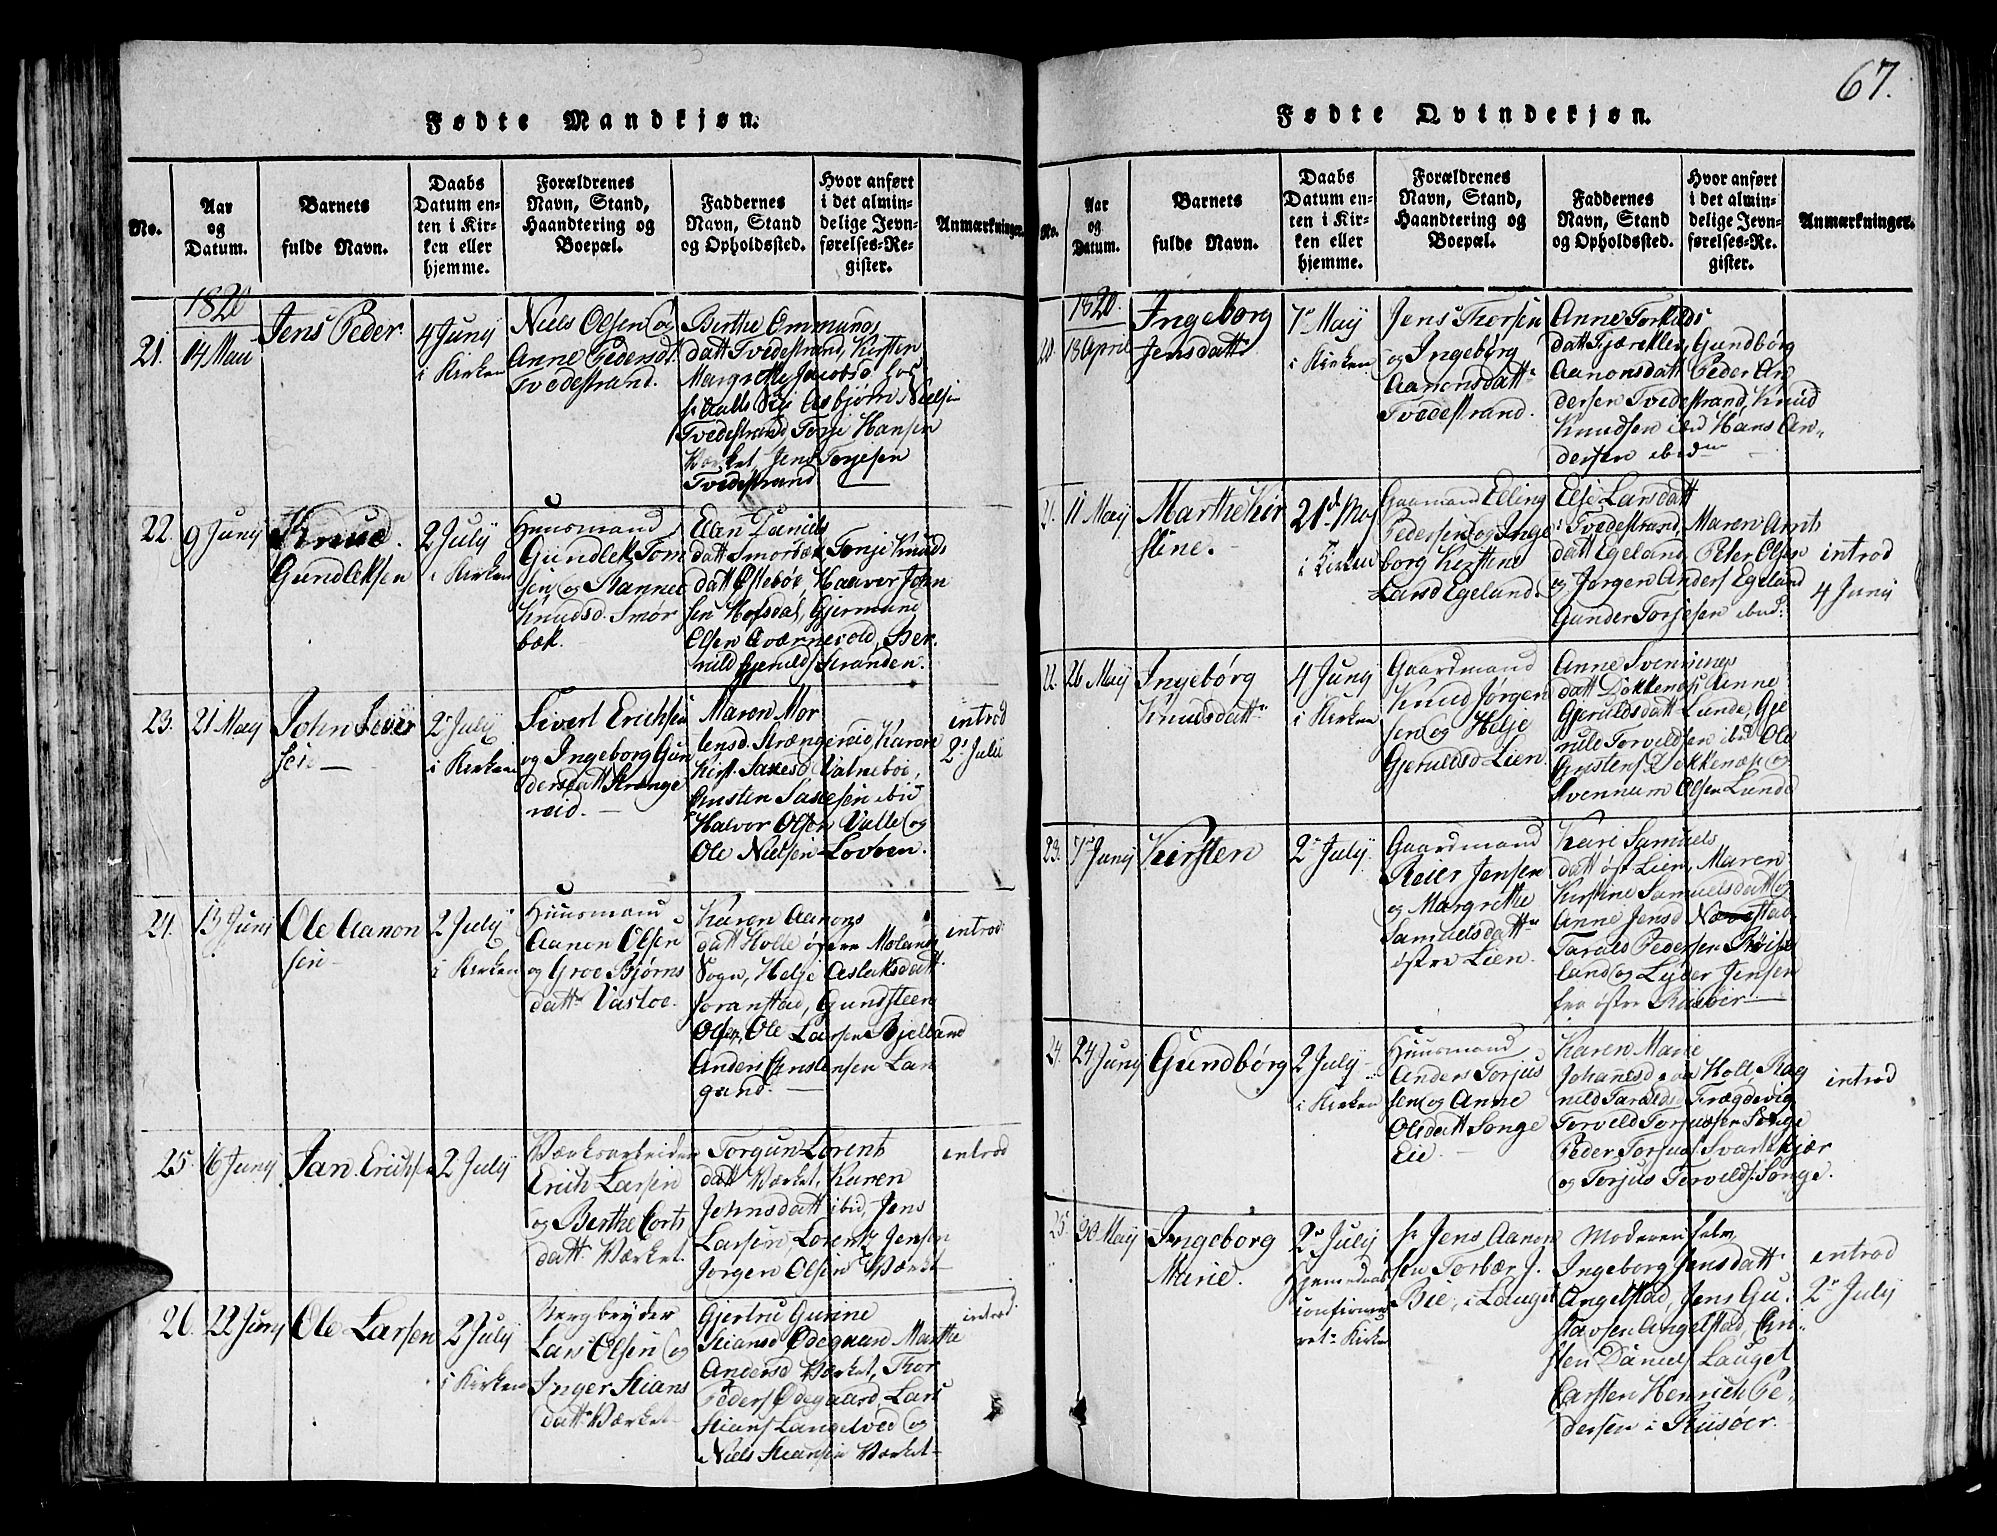 67.
Fødte Mandkjøn.
No.
Aar
og
Datum.
Barnets
fulde Navn.
Daabs
Datum en-
ten i Kir-
ken eller
hjemme.
Forældrenes
Navn, Stand,
Haandtering og
Boepæl.
Faddernes
Navn, Stand
og Opholdssted.
Hvor anført
i det almin-
delige Jevn-
førelses-Re-
gister.
Anmærkninger.
1820
21.
14 Maii
Jens Peder
4 Junÿ
i Kirken
Niels Olsen og
Anne Pedersd
Tvedestrand.
Berthe Emmunds
datt Tvedestrand, Kirsten
Margrethe Jacobsd
Asbjørn Nielsen
Tvedestrand Torje Hansen
Værket, Jens Torjesen
Tvedestrand
22.
9 Junÿ
Knud
Gundleksen
2 Julÿ
i Kirken
Huusmand
Gundlek Tom
sen og Stannee
Knudsd. Smør
bæk.
Elen Taraldsdatt
Smørbæk Tonje Knuds
datt Østebøe Haaver John
sen Hofsdal, Gjermund
Olsen Qværnevold, Ger
uld Gjeruldsen Stranden.
23.
21 Maÿ
John Siver
sen
2 Julÿ
i Kirken
Sivert Erichsen
og Ingeborg Gun
dersdatt Strænge
reid.
Maren Mor
tensd. Strængereid Karen
Kirst. Saxesd, Valnebøe,
Christen Saxesen ibid
Halvor Olsen Valle og
Ole Nielsen Lovoen.
introd
2 Julii
24.
13 Juni
Ole Aanon
sen
2 Julÿ
i Kirken
Huusmand
Aanon Olsen
og Groe Bjørns
datt Vastøe.
Karen Aanons
datt Holte østre Molands
Sogn, Helje Aslaksdatt.
Joranstad, Gundsteen
Olsen, Ole Larsen Bjelland
Anders Christensen Lan
gand.
introd
25.
16 Junÿ
Jan Erichsen
2 Julÿ
Værksarbeider
Erich Larsen
og Berthe Corts
datt Værket.
Torgun Lorents
datt Værket, Karen
Johnsdatt ibid, Jens
Larsen, Lorentz Jensen
Jørgen Olsen Værket
introd
26.
22 Junÿ
Ole Larsen
2 Julÿ
i Kirken
Bergbryder
Lars Olsen og
Inger Stians
datt Værket
Gjertru Gurine
Stiansd Ødegaard Marthe
Andersd Værket, Thor
Peders Ødegaard, Lars
Stians Langetved og
Niels Stiansen Værket
introd.
Fødte Qvindekjøn.
No.
Aar
og
Datum.
Barnets
fulde Navn.
Daabs
Datum en-
ten i Kir-
ken eller
hjemme.
Forældrenes
Navn, Stand,
Haandtering og
Boepæl.
Faddernes
Navn, Stand
og Opholdssted.
Hvor anført
i det almin-
delige Jevn-
førelses-Re-
gister.
Anmærkninger.
1820
20.
13 April
Ingeborg
Jensdatt
7 Maÿ
i Kirken
Jens Thorsen
og Ingebørg
Aanonsdatt
Tvedestrand.
Anne Torkilds
datt Fjærekleu, Gundbørg
Aanonsdatt Peder An
dersen Tvedestrand, Knud
Knudsen ibd Hans An
dersen ibid
21.
11 Maÿ
Marthe Kir
stine.
21 Maÿ
i Kirken
Gaarmand Elling
Pedersen og Inge
borg Kirstine
Larsd Egeland.
Else Larsdatt
Tvedestrand, Maren Arnts
datt Egeland Peter Olsen
og Jørgen Anders Egeland
Gunder Torjesen ibid
introd
4 Junÿ
22.
26 Maÿ
Ingebørg
Knudsdatt
4 Junÿ
i Kirken
Gaardmand
Knud Jørgen
sen og Helje
Gjeruldsd Lien.
Anne Svennings
datt Dokkenæs, Anne
Gjeruldsdatt Lunde, Gje
ruld Torveldsen ibid Ole
Christens Dokkenæs og
Svennum Olsen Lunde
23.
7 Junÿ
Kirsten
2 Julÿ
Gaardmand
Reier Jensen
og Margrethe
Samuelsdatt
østre Lien.
Kari Samuels
datt øst Lien, Maren
Kirstine Samuelsdatt og
Anne Jensd Navestad
Tarald Pedersen Røise
land og Lyder Jensen
fra østre Riisøer.
24.
24 Junÿ
Gundbørg
2 Julÿ
i Kirken
Huusmand
Anders Torjus
sen og Anne
Olsdatt Songe
Eie.
Karen Marie
Johannesd Holt Rag
nild Taraldsd Trægdevig
Torveld Torjussen Songe
Peder Torjus Svartekjær
og Torjus Torvelds. Songe.
introd
25.
30 Maÿ
Ingeborg
Marie.
2 Julÿ
Hjemedaab
confirme
ret i Kirken
Hr Jens Aanon
sen Torbær J.
Bie, i Lauget
Moderen selv,
Ingeborg Jensdatt
Angelstad, Jens Gu
stavsen Angelstad, Chri
sten Daniels Lauget
Carsten Henrich Pe
dersen i Riisøer.
introd
2 Julÿ